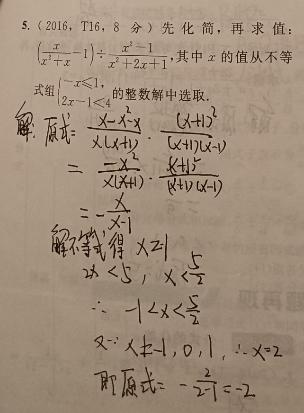 5. (2016, T16, 8 分) 先化简, 再求值:
(x/(x²+x) - 1) ÷ (x²-1)/(x²+2x+1), 其中 x 的值从不等
式组 { -x≤1, 2x-1<4 的整数解中选取.
解: 原式 = (x-x²-x)/(x(x+1)) · (x+1)²/((x+1)(x-1))
= (-x²)/(x(x+1)) · (x+1)²/((x+1)(x-1))
= - x/(x-1)
解不等式得 x≥-1
2x<5, x<5/2
∴ -1<x<5/2
又∵ x≠-1, 0, 1, ∴x=2
即原式 = - 2/(2-1) = -2